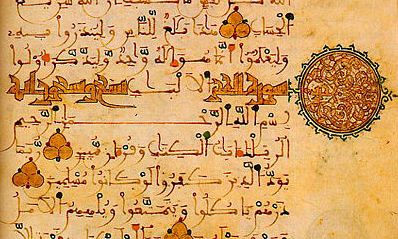 الحساب هذا بلغ للناس ولينذروا به
وليعلموا انما هو اله وحد وليذكر اولوا
سورة الحجر الالبب تسع وتسعون اية
بسم الله الرحمن الرحيم
الر تلك ايت الكتب وقران مبين ربما
يود الذين كفروا لو كانوا مسلمين
ذرهم ياكلوا ويتمتعوا ويلههم الامل